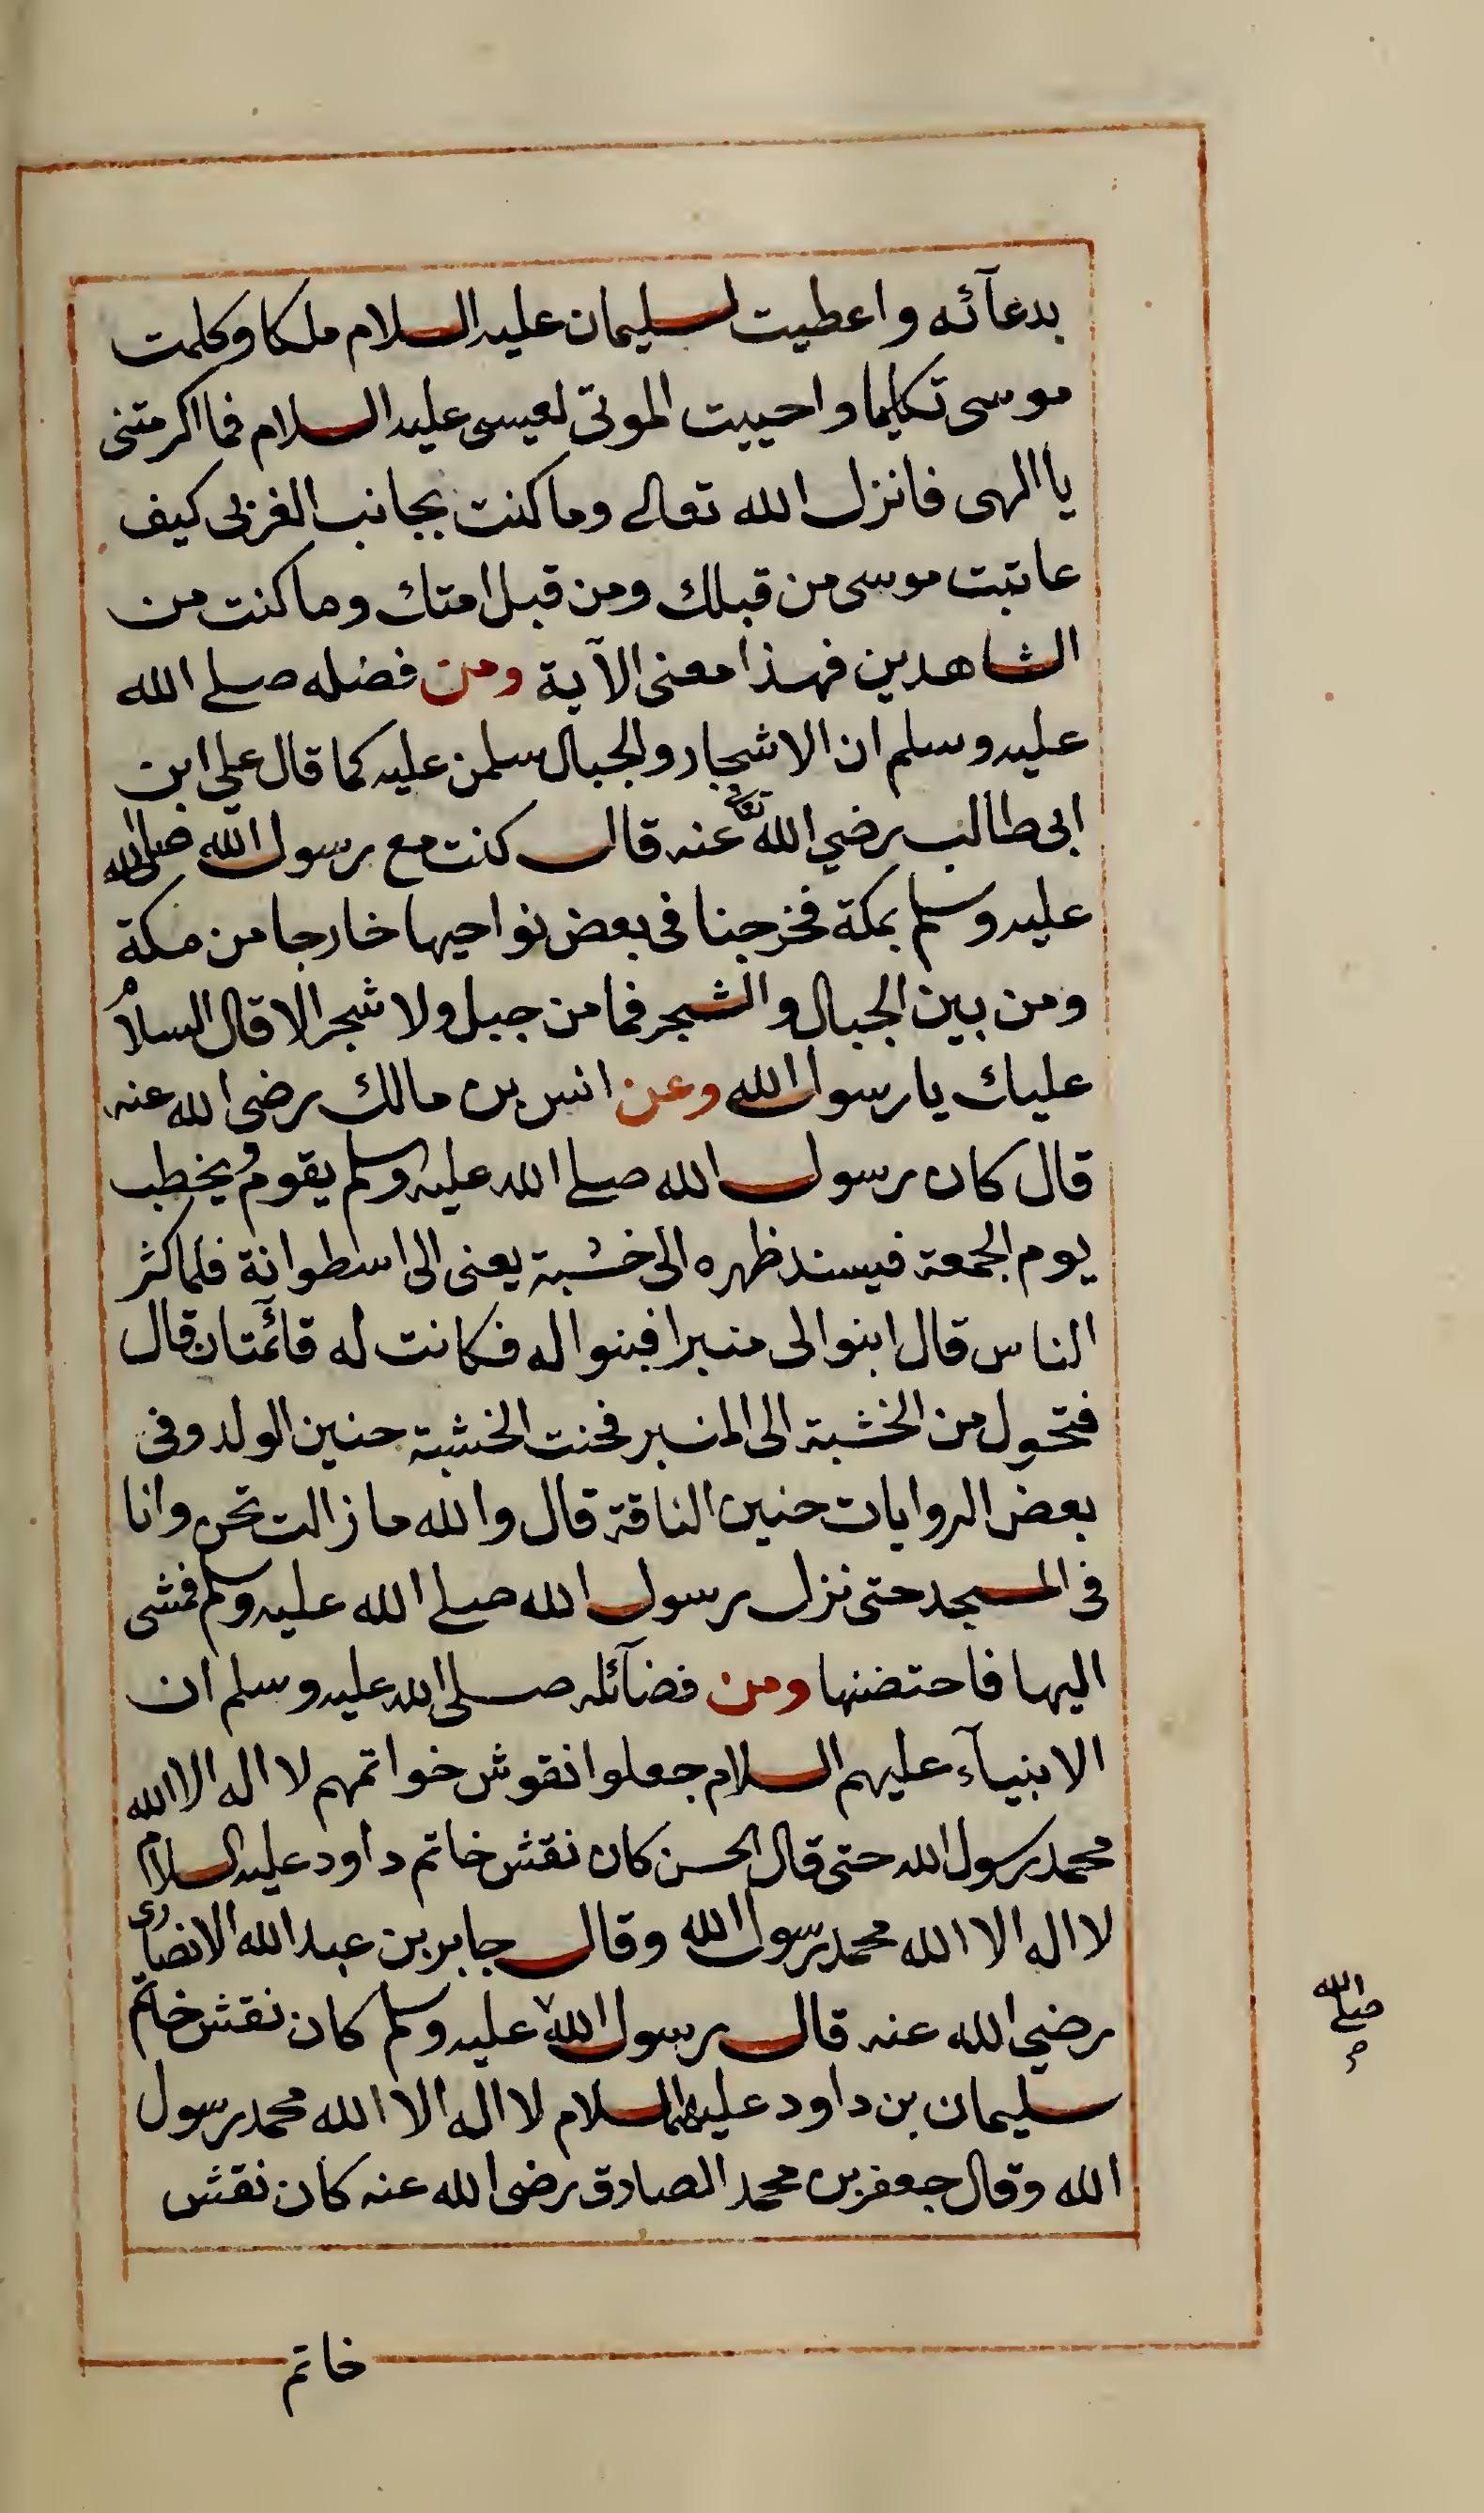 بدعآئه واعطيت لسليمان عليه السلام ملكا وكلمت
موسى تكليما واحييت الموتى لعيسى عليه السلام فما اكرمتنى
يا الهى فانزل الله تعالى وما كنت بجانب الغربى كيف
عاتبت موسى من قبلك ومن قبل امتك وما كنت من
الشاهدين فهذا معنى الآية ومن فضله صلى الله
عليه وسلم ان الاشجار والجبال سلمن عليه كما قال على ابن
ابى طالب رضي الله تعالى عنه قال كنت مع رسول الله صلى الله
عليه وسلم بمكة فخرجنا فى بعض نواحيها خارجا من مكة
ومن بين الجبال والشجر فما من جبل ولا شجر الا قال السلام
عليك يا رسول الله وعن انس بن مالك رضى الله عنه
قال كان رسول الله صلى الله عليه وسلم يقوم ويخطب
يوم الجمعة فيسند ظهره الى خشبة يعنى الى اسطوانة فلما كثر
الناس قال ابنوا لى منبرا فبنوا له فكانت له قائمتان قال
فتحول من الخشبة الى المنبر فحنت الخشبة حنين الولد وفى
بعض الروايات حنين الناقة قال والله ما زالت تحن وانا
فى المسجد حتى نزل رسول الله صلى الله عليه وسلم فمشى
اليها فاحتضنها ومن فضآئله صلى الله عليه وسلم ان
الانبيآء عليهم السلام جعلوا نقوش خواتمهم لا اله الا الله
محمد رسول الله حتى قال الحسن كان نقش خاتم داود عليه السلام
لا اله الا الله محمد رسول الله وقال جابر بن عبد الله الانصارى
رضي الله عنه قال رسول الله عليه وسلم كان نقش خاتم
صلى الله
سليمان بن داود عليهما السلام لا اله الا الله محمد رسول
الله وقال جعفر بن محمد الصادق رضى الله عنه كان نقش
خاتم